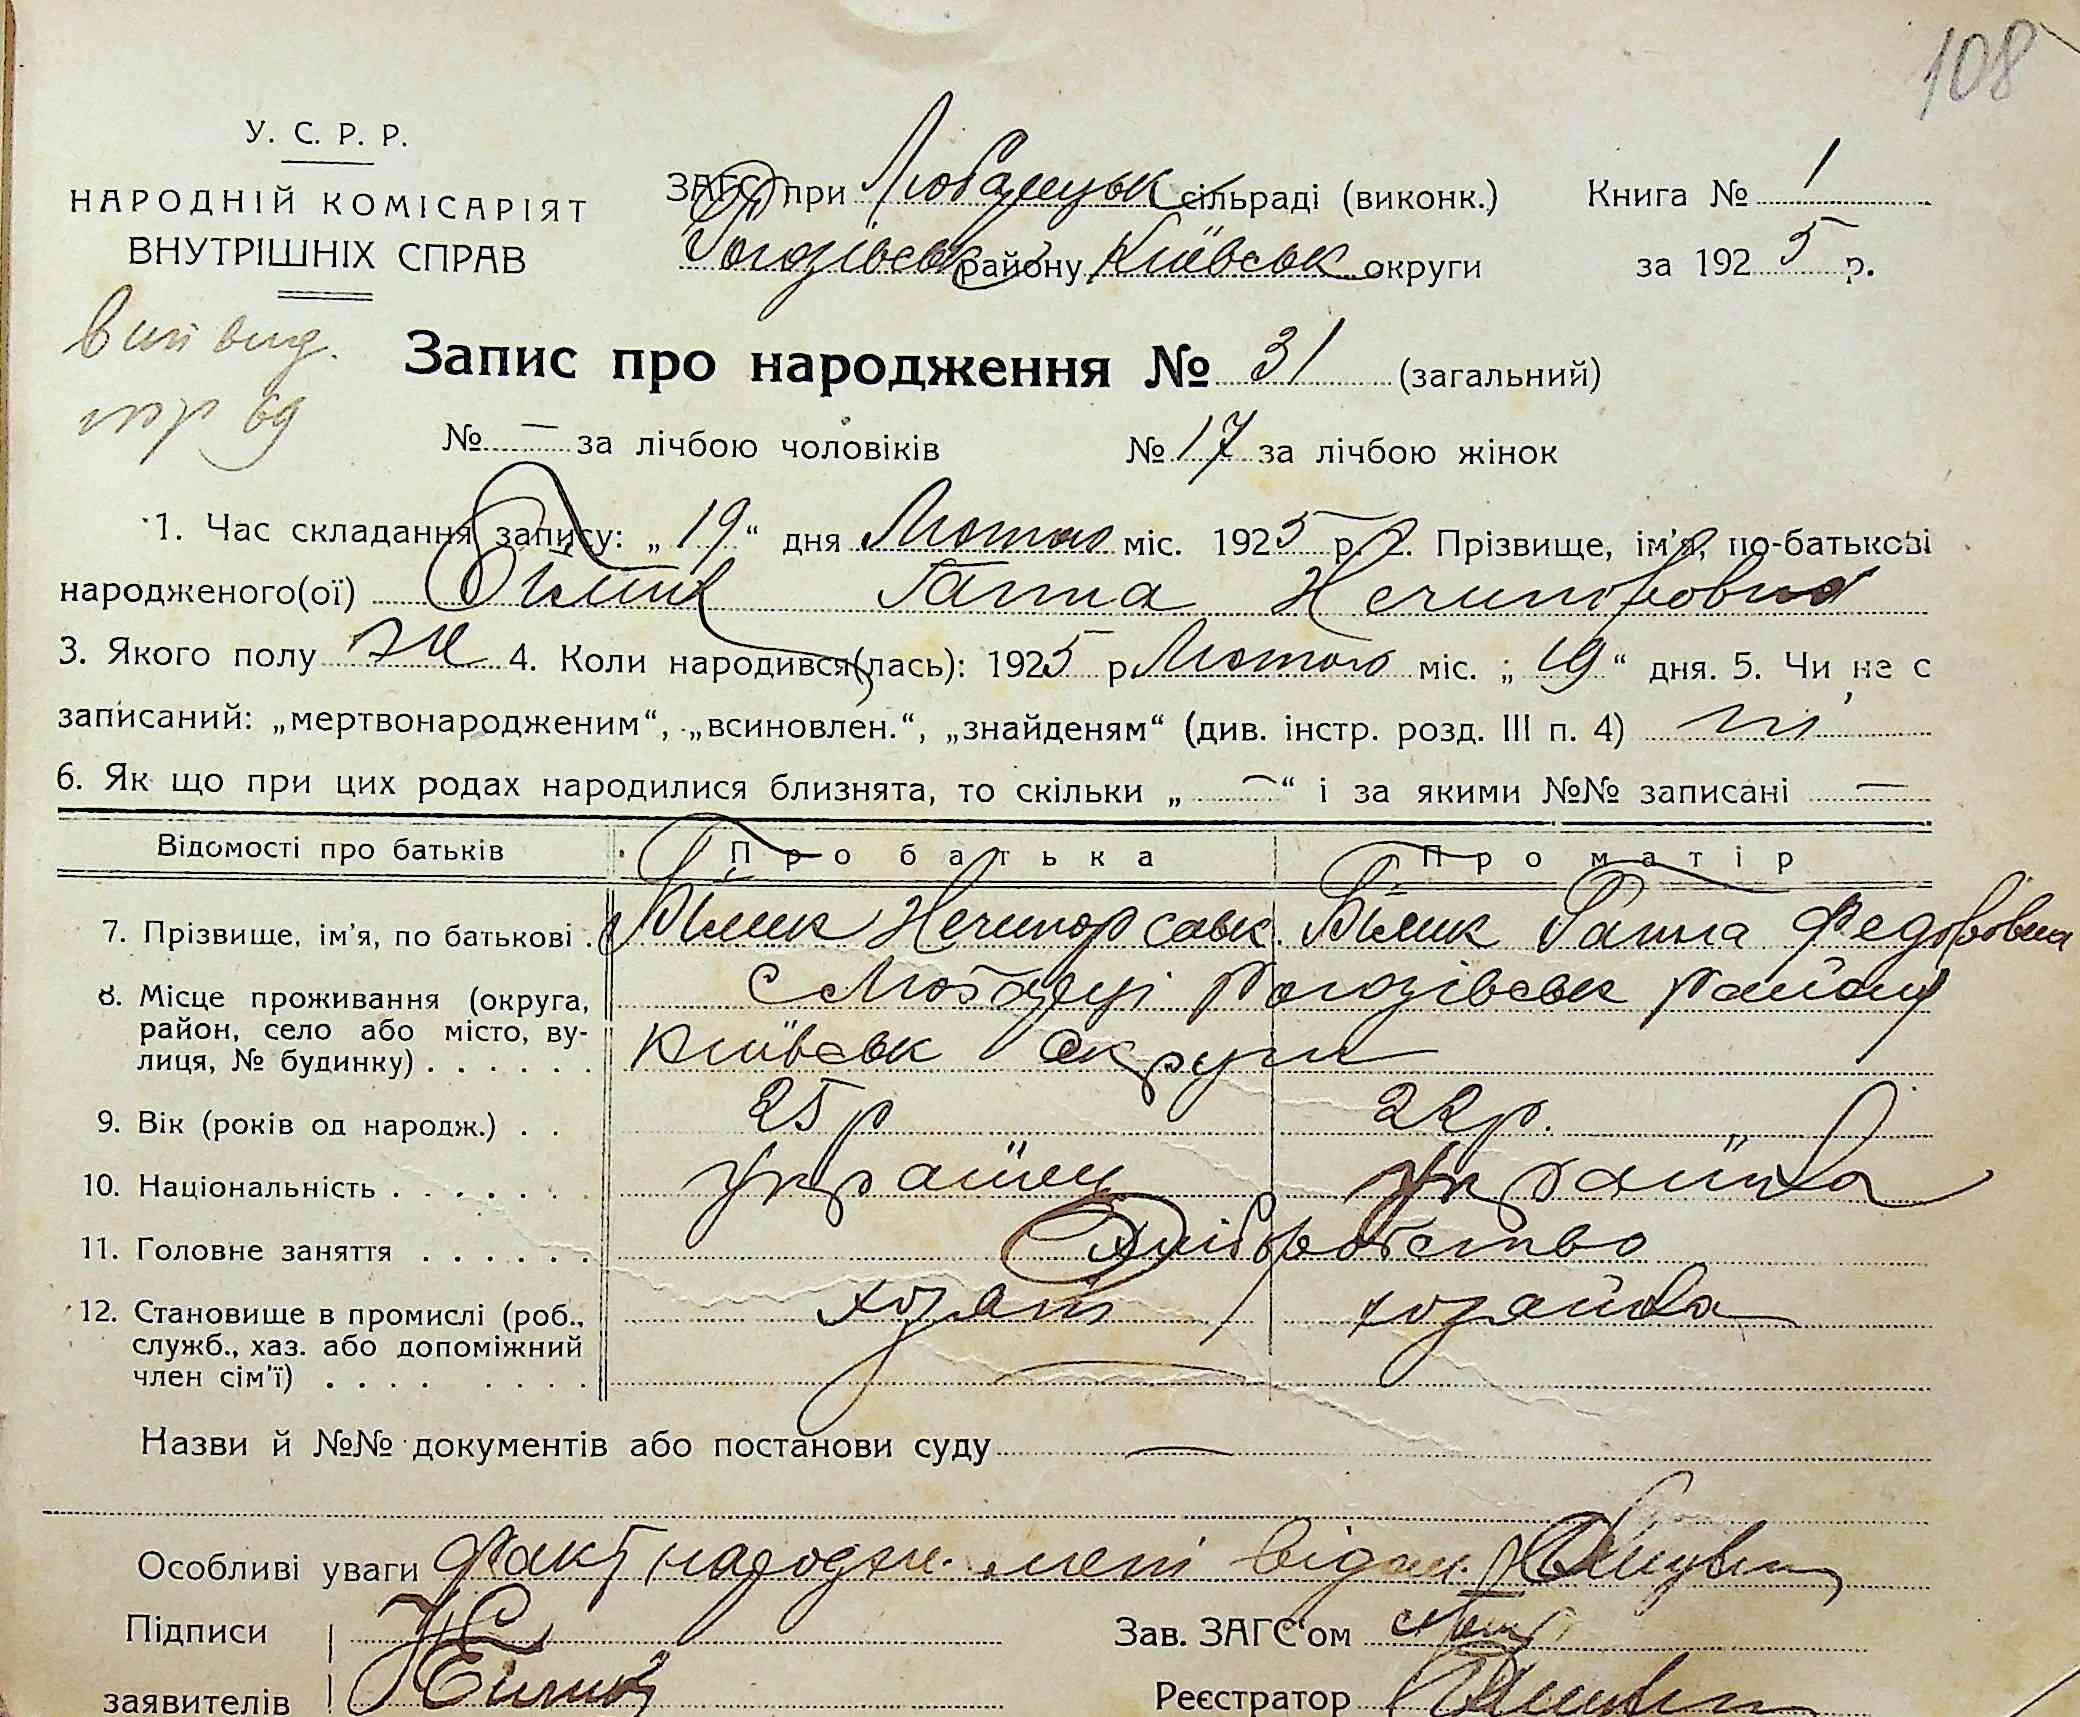 108
У. С. Р. Р.
НАРОДНІЙ КОМІСАРІЯТ
ВНУТРІШНІХ СПРАВ
ЗАГС при Любарецьк сільраді (виконк.) Книга № 1
Рогозівськ району Київськ округи за 1925 р.
вип вид.
Запис про народження № 31 (загальний)
№ — за лічбою чоловіків № 17 за лічбою жінок
1. Час складання запису: „19“ дня Лютого міс. 1925 р. 2. Прізвище, ім'я, по-батькові
народженого(ої) Білик Ганна Нечипоровна
3. Якого полу Ж 4. Коли народився(лась): 1925 р. Лютого міс. „19“ дня. 5. Чи не є
записаний: „мертвонародженим“, „всиновлен.“, „знайденям“ (див. інстр. розд. III п. 4) ні
6. Як що при цих родах народилися близнята, то скільки „—“ і за якими №№ записані —
Відомості про батьків Про батька Про матір
7. Прізвище, ім'я, по батькові . Білик Нечипор Савк. Білик Ганна Федоровна
8. Місце проживання (округа, с Любарці Рогозівськ району
район, село або місто, ву-
лиця, № будинку) . . . . . . Київськ округи
9. Вік (років од народж.) . . 25 р 22 р.
10. Національність . . . . . . українец українка
11. Головне заняття . . . . . . Хліборобство
12. Становище в промислі (роб., хозяїн хозяйка
служб., хаз. або допоміжний
член сім'ї) . . . . . . . .
Назви й №№ документів або постанови суду —
Особливі уваги Факт народж. мені відом.
Підписи Зав. ЗАГС'ом
заявителів Н Білик Реєстратор